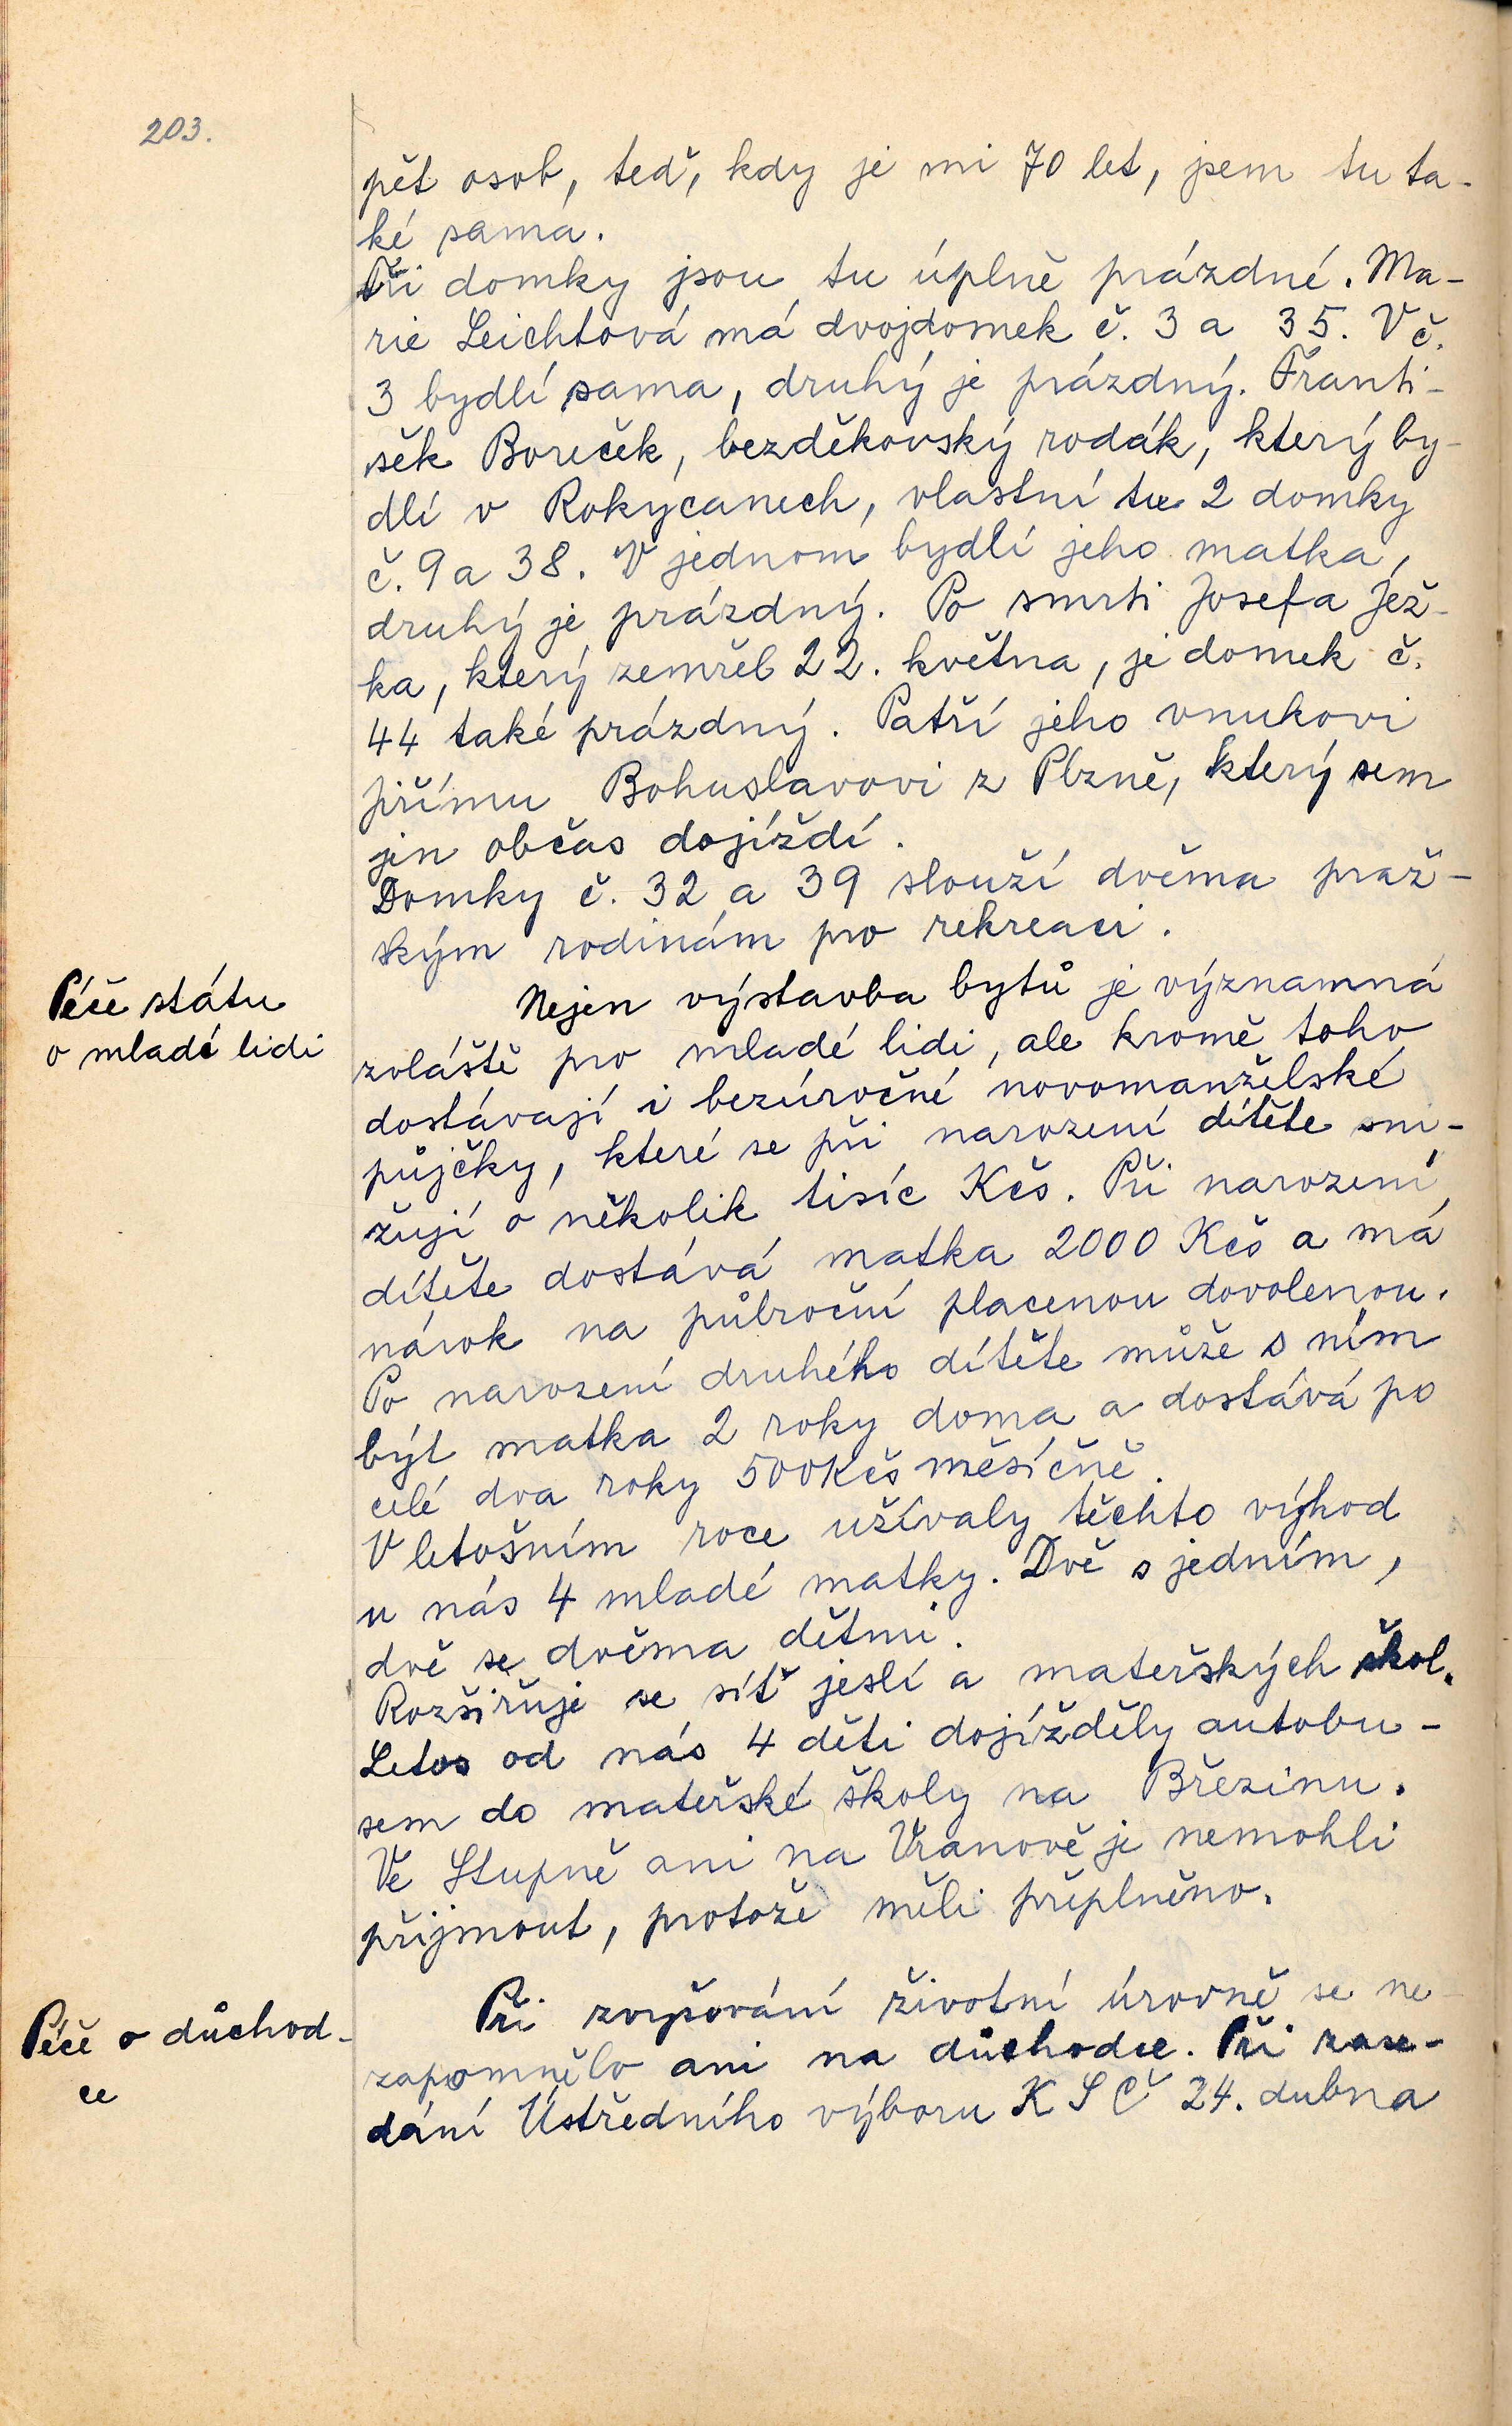 203.
pět osob, teď, kdy je mi 70 let, jsem tu ta-
ké sama.
Tři domky jsou tu úplně prázdné. Ma-
rie Leichtová má dvojdomek č. 3 a 35. V č.
3 bydlí sama, druhý je prázdný. Franti-
šek Boreček, bezděkovský rodák, který by-
dlí v Rokycanech, vlastní tu 2 domky
č. 9 a 38. V jednom bydlí jeho matka,
druhý je prázdný. Po smrti Josefa Jež-
ka, který zemřel 22. května, je domek č.
44 také prázdný. Patří jeho vnukovi
Jiřímu Bohuslavovi z Plzně, který sem
jen občas dojíždí.
Domky č. 32 a 39 slouží dvěma praž-
ským rodinám pro rekreaci.
Péče státu
o mladé lidi
Nejen výstavba bytů je významná
zvláště pro mladé lidi, ale kromě toho
dostávají i bezúročné novomanželské
půjčky, které se při narození dítěte sni-
žují o několik tisíc Kčs. Při narození
dítěte dostává matka 2000 Kčs a má
nárok na půlroční placenou dovolenou.
Po narození druhého dítěte může s ním
být matka 2 roky doma a dostává po
celé dva roky 500 Kčs měsíčně.
V letošním roce užívaly těchto výhod
u nás 4 mladé matky. Dvě s jedním,
dvě se dvěma dětmi.
Rozšiřuje se síť jeslí a mateřských škol.
Letos od nás 4 děti dojížděly autobu-
sem do mateřské školy na Březinu.
Ve Stupně ani na Vranově je nemohli
přijmout, protože měli přeplněno.
Péče o důchod-
ce
Při zvyšování životní úrovně se ne-
zapomnělo ani na důchodce. Při zase-
dání Ústředního výboru KSČ 24. dubna